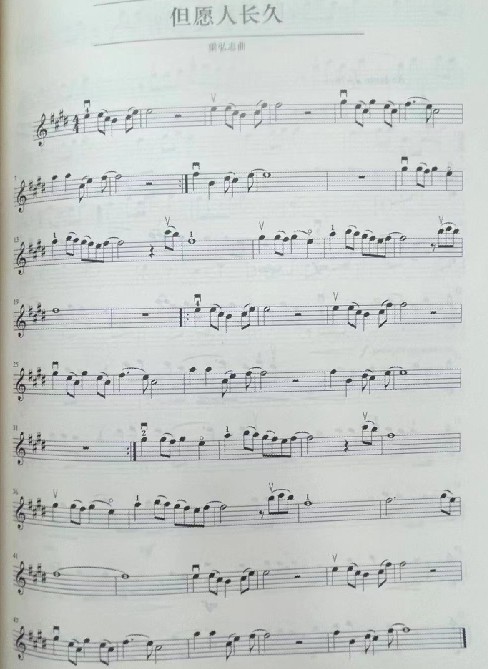 但愿人长久
梁弘志曲
7
13
19
25
31
36
41